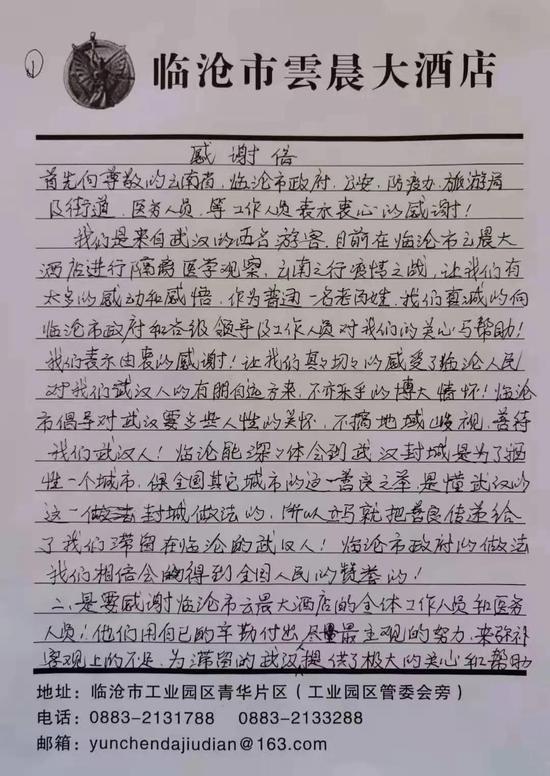 ①
临沧市雲晨大酒店
感谢信
首先向尊敬的云南省,临沧市政府,公安,防疫办,旅游局
及街道,医务人员,等工作人员表示衷心的感谢!
我们是来自武汉的两名游客,目前在临沧市云晨大
酒店进行隔离医学观察,云南之行疫情之战,让我们有
太多的感动和感悟,作为普通一名老百姓,我们真诚的向
临沧市政府和各级领导及工作人员对我们的关心与帮助!
我们表示由衷的感谢!让我们真真切切的感受了临沧人民
对我们武汉人的有朋自远方来,不亦乐乎的博大情怀!临沧
市倡导对武汉要多些人性的关怀,不搞地域岐视,善待
我们武汉人!临沧能深深体会到武汉封城是为了牺
性一个城市,保全国其它城市的这一善良之举,是懂武汉的
这一做法封城做法的,所以立马就把善良传递给
了我们滞留在临沧的武汉人!临沧市政府的做法
我们相信会得到全国人民的赞誉的!
二,是要感谢临沧市云晨大酒店的全体工作人员和医务
人员!他们用自己的辛勤付出,尽最主观的努力,来弥补
客观上的不足,为滞留的武汉提供了极大的关心和帮助
地址:临沧市工业园区青华片区(工业园区管委会旁)
电话:0883-2131788 0883-2133288
邮箱:yunchendajiudian@163.com